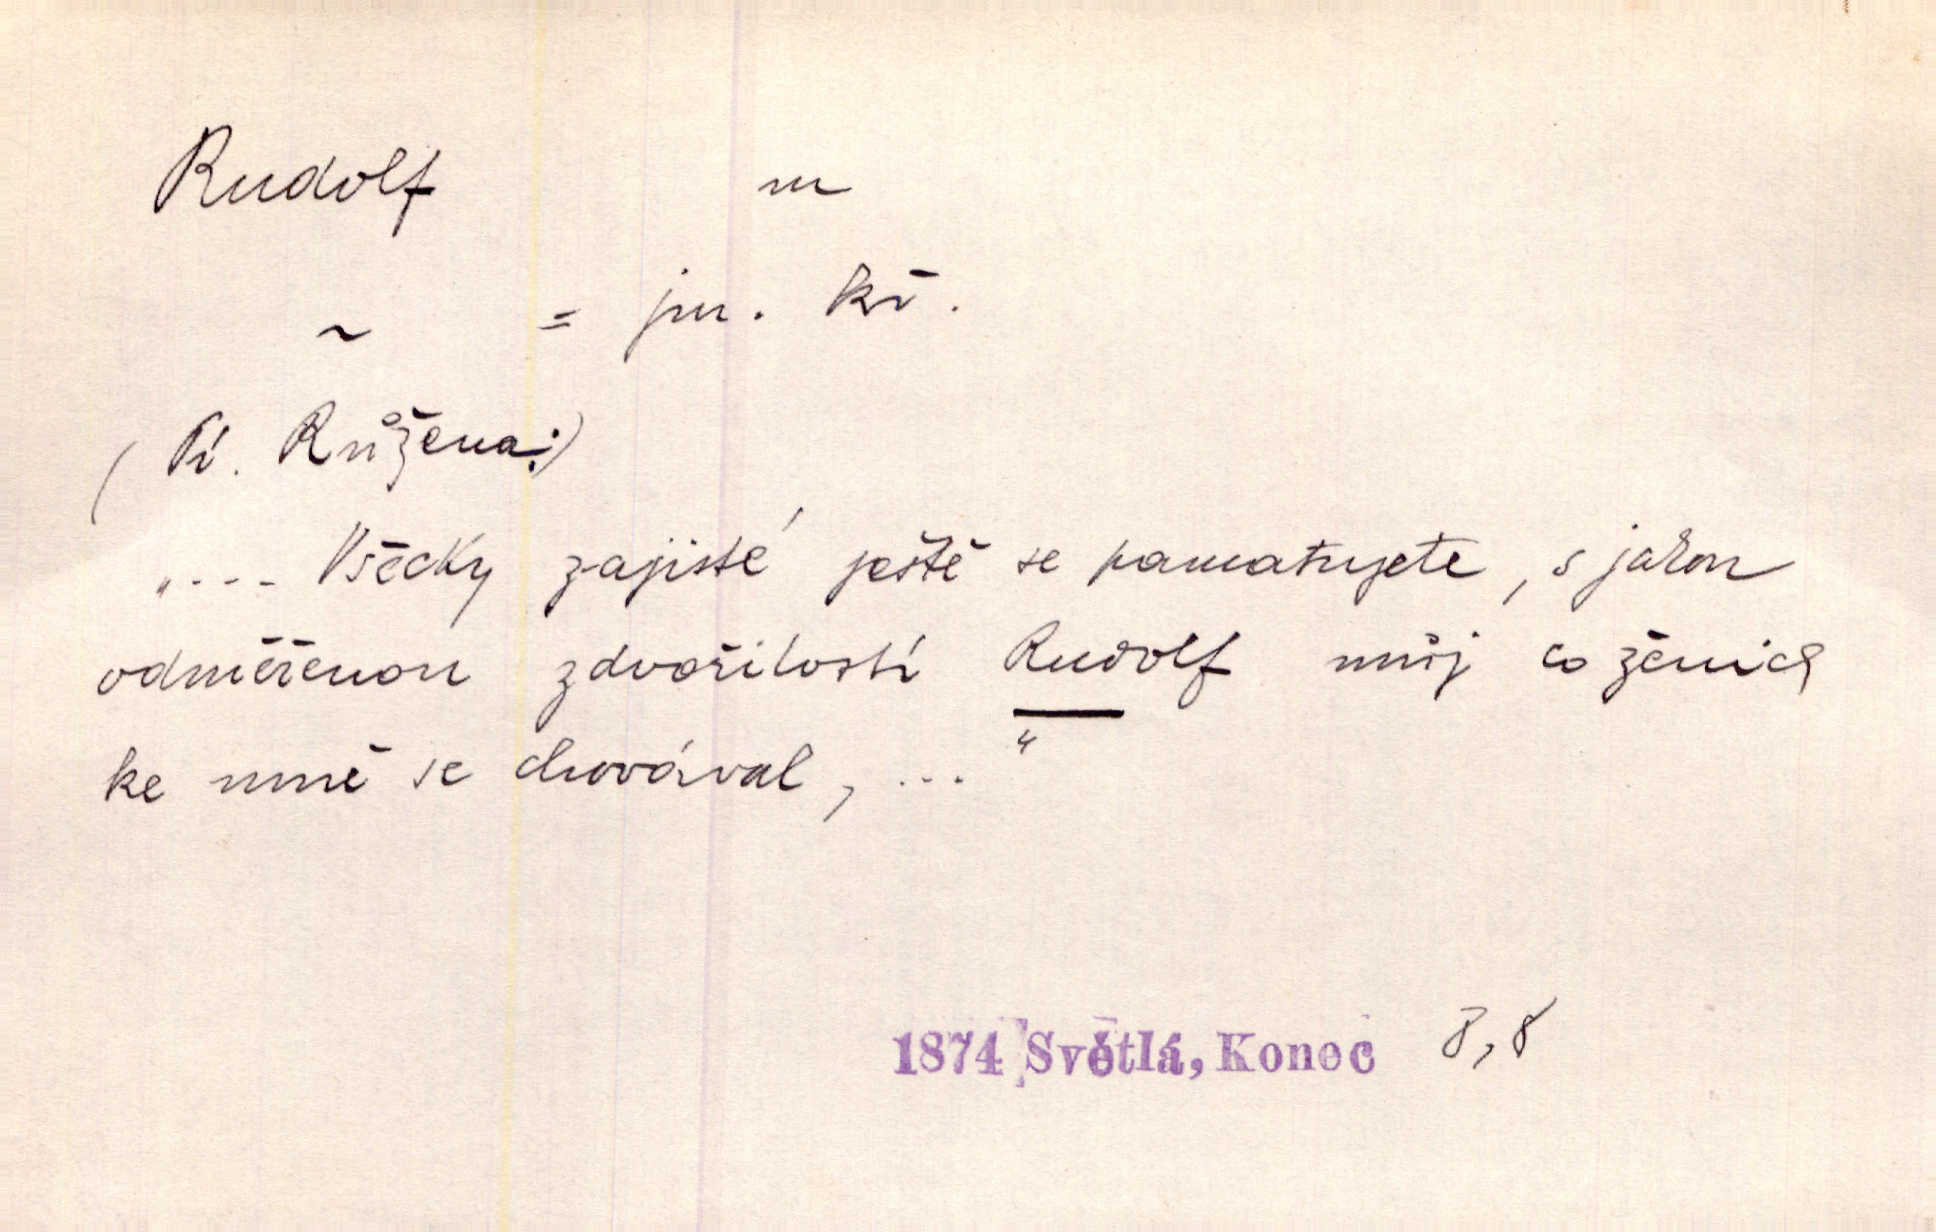 Rudolf m
~ = jm. kř.
(Pí. Růžena:)
„.... Všecky zajisté ještě se pamatujete, s jakou
odměřenou zdvořilostí Rudolf můj co ženich
ke mně se chovával, ..."
1874 Světlá, Konec 8,8